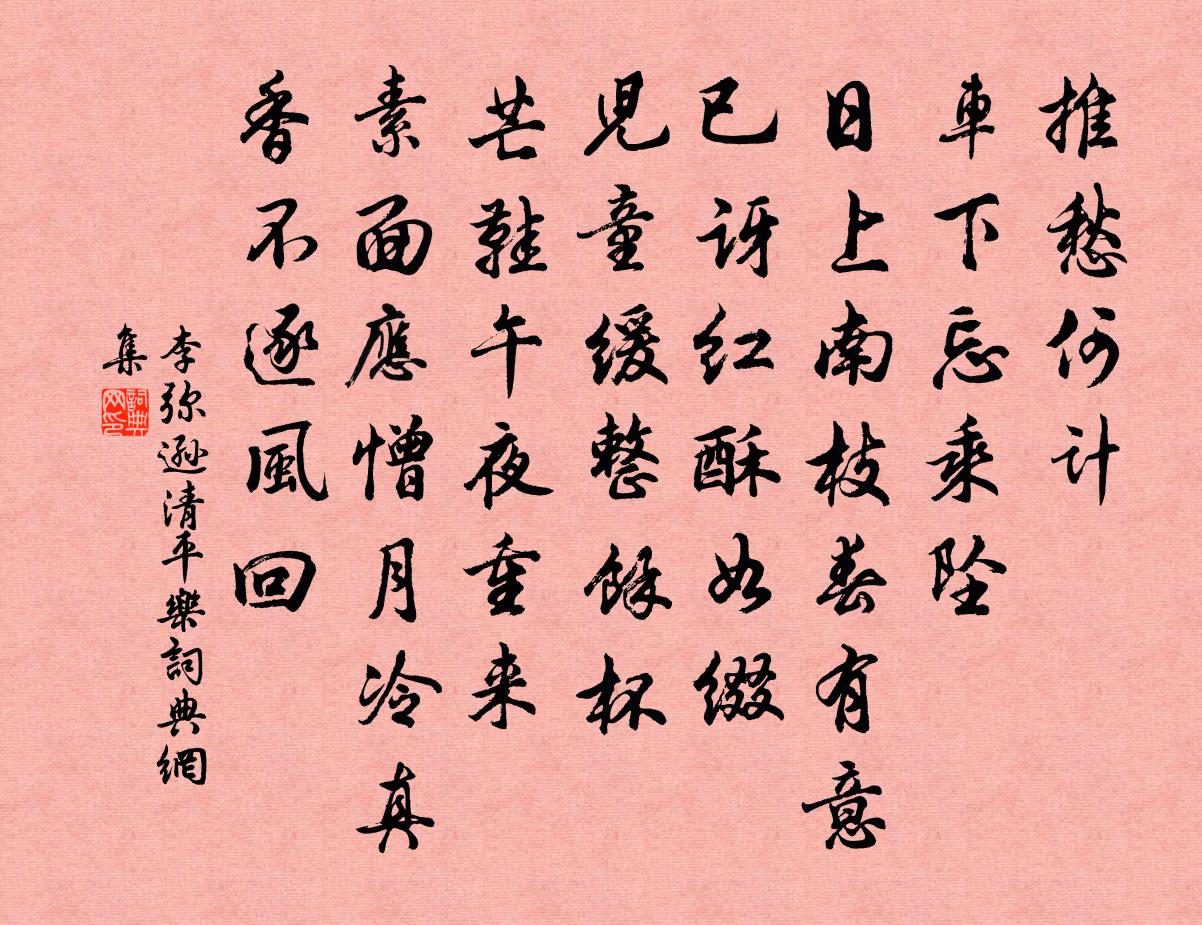 推愁何计
車下忘乘坠
日上南枝春有意
已讶红酥如缀
児童缓整馀杯
芒鞋午夜重来
素面應憎月冷真
香不逐風回
李弥遜清平樂詞典網
集
詞典網印